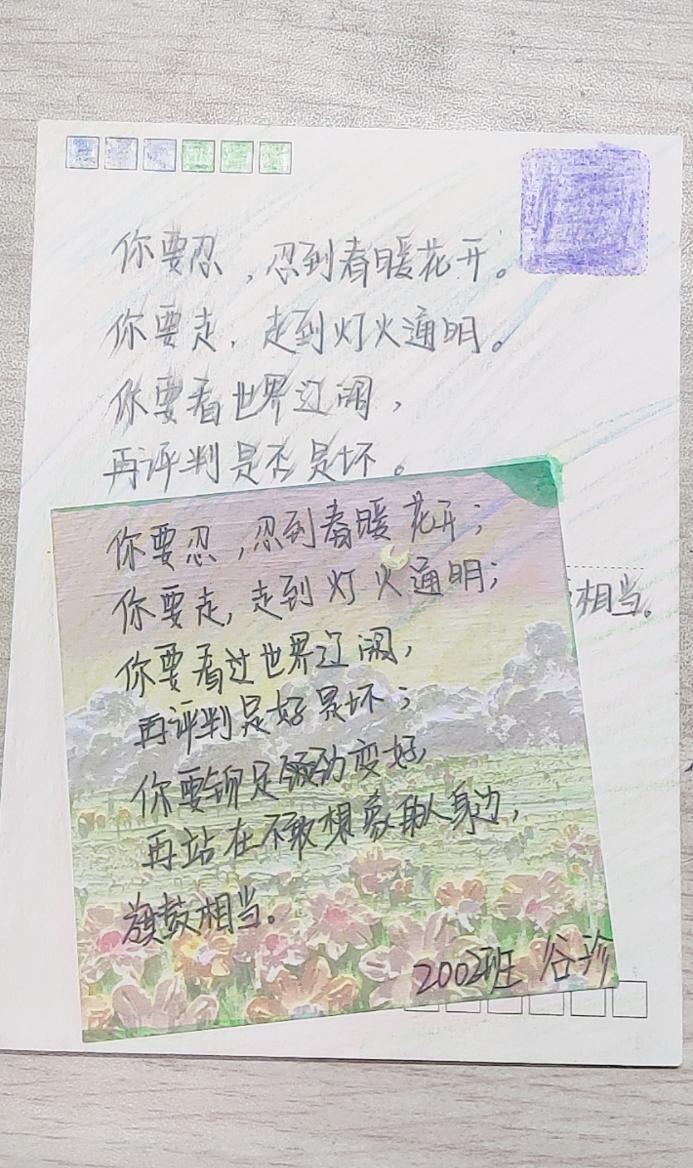 你要忍，忍到春暖花开。
你要走，走到灯火通明。
你要看世界辽阔，
再评判是否是坏。
相当。
你要忍，忍到春暖花开；
你要走，走到灯火通明；
你要看过世界辽阔，
再评判是好是坏；
你要铆足领劲变好，
再站在不敢想象的人身边，
旗鼓相当。
2002班 谷珍